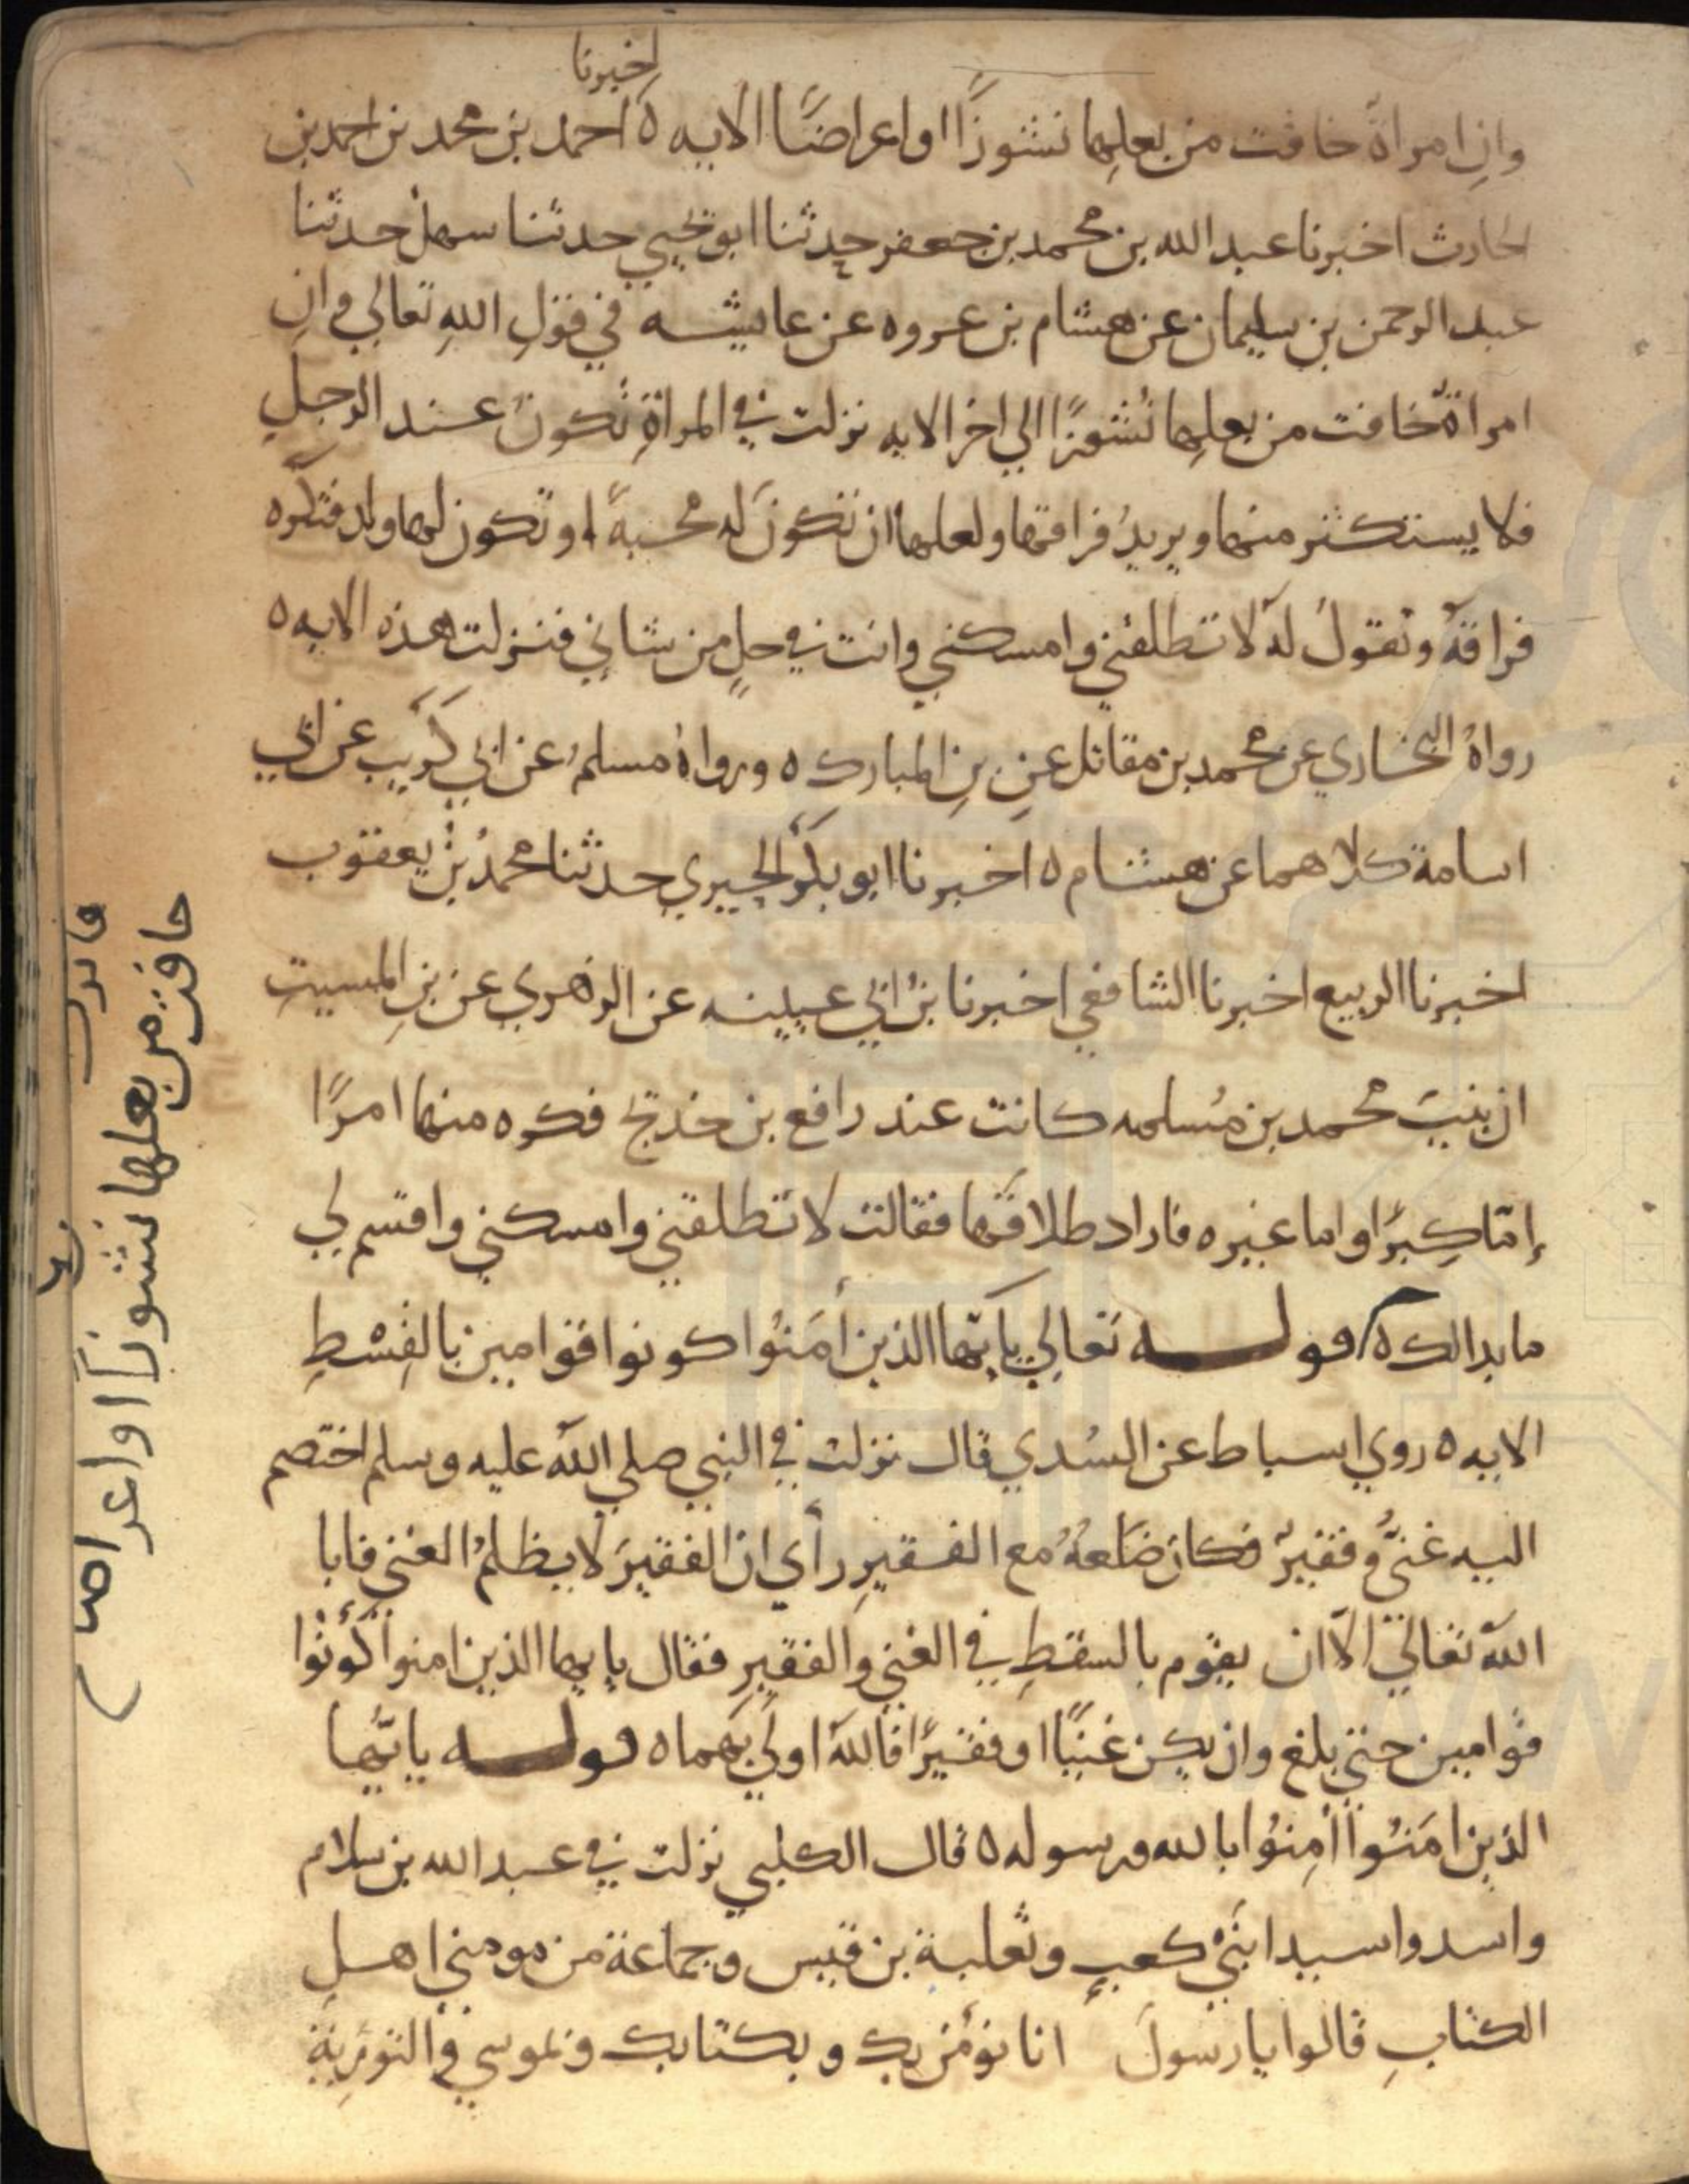 اخبرنا
وان امراة خافت من بعلها نشوزًا او اعراضًا الايه ه احمد بن محمد بن احمد بن
الحارث اخبرنا عبد الله بن محمد بن جعفر حدثنا ابو يحيي حدثنا سهل حدثنا
عبد الرحمن بن سليمان عن هشام بن عروه عن عايشه في قولِ اللهِ تعالي وانِ
امراةٌ خافت من بعلِها نُشوزًا الي اخر الايه نزلت في المراةِ تكونُ عند الرجلِ
فلا يستكثر منها ويريدُ فراقها ولعلها ان تكونَ له محبةً او تكون لها ولد فتكره
فراقهُ وتقولُ لهُ لا تطلقني وامسكني وانت في حلٍ من شاني فنزلت هذه الايه ه
رواهُ البخاري عن محمد بن مقاتل عنِ بنِ المبارك ه ورواهُ مسلمٌ عن ابي كُرَيب عن ابي
اسامة كلاهما عن هشام ه اخبرنا ابو بكر الحيري حدثنا محمدُ بنُ يعقوب
اخبرنا الربيع اخبرنا الشافعي اخبرنا بنُ ابي عيينه عن الزهري عن بنِ المسيبِ
ان بنتَ محمد بن مُسلمه كانت عند رافع بن خديج فكره منها امرًا
إمّا كِبرًا واما غيره فاراد طلاقَها فقالت لا تطلقني وامسكني واقسم لي
ما بدا لك ه قوله تعالي يا ايّها الذين أمَنُوا كونوا قوامين بالقِسْطِ
الايه ه روي اسباط عن السُدي قال نزلت في النبي صلي اللهُ عليه وسلم اختصم
اليه غنيٌّ وفقيرٌ فكان ضَلعهُ مع الفقيرِ رأي ان الفقيرَ لا يظلمُ الغني فابا
اللهُ تعالي الاّ ان يقوم بالسقطِ في الغني والفقيرِ فقال يا ايها الذين امنوا كُونُوا
قوامين حتي بلغ وان يكن غنيًا او فقيرًا فاللهُ اولَي بهما ه قوله يا ايّها
الذين امَنُوا أمِنُوا بالله ورسوله ه قال الكلبي نزلت في عبد الله بن سلام
واسد واسيد ابنَيْ كعبٍ وثعلبة بن قيس وجماعة من مومني اهلِ
الكتابِ قالوا يا رسولَ انا نؤمن بك وبكتابك وبموسي والتوريةِ
خافت من بعلها نشوزًا او اعراضا